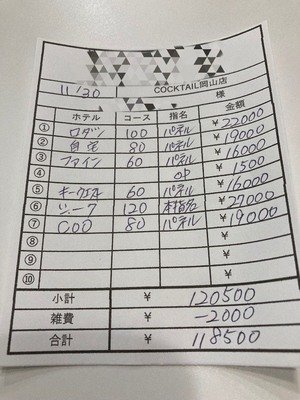 COCKTAIL岡山店
11/30 様
ホテル コース 指名 金額
① ロダン 100 パネル ¥22000
② 自宅 80 パネル ¥19000
③ ファイン 60 パネル ¥16000
④ OP ¥1500
⑤ 60 パネル ¥16000
⑥ 120 本指名 ¥27000
⑦ COO 80 パネル ¥19000
⑧ ¥
⑨ ¥
⑩ ¥
小計 ¥ 120500
雑費 ¥ -2000
合計 ¥ 118500